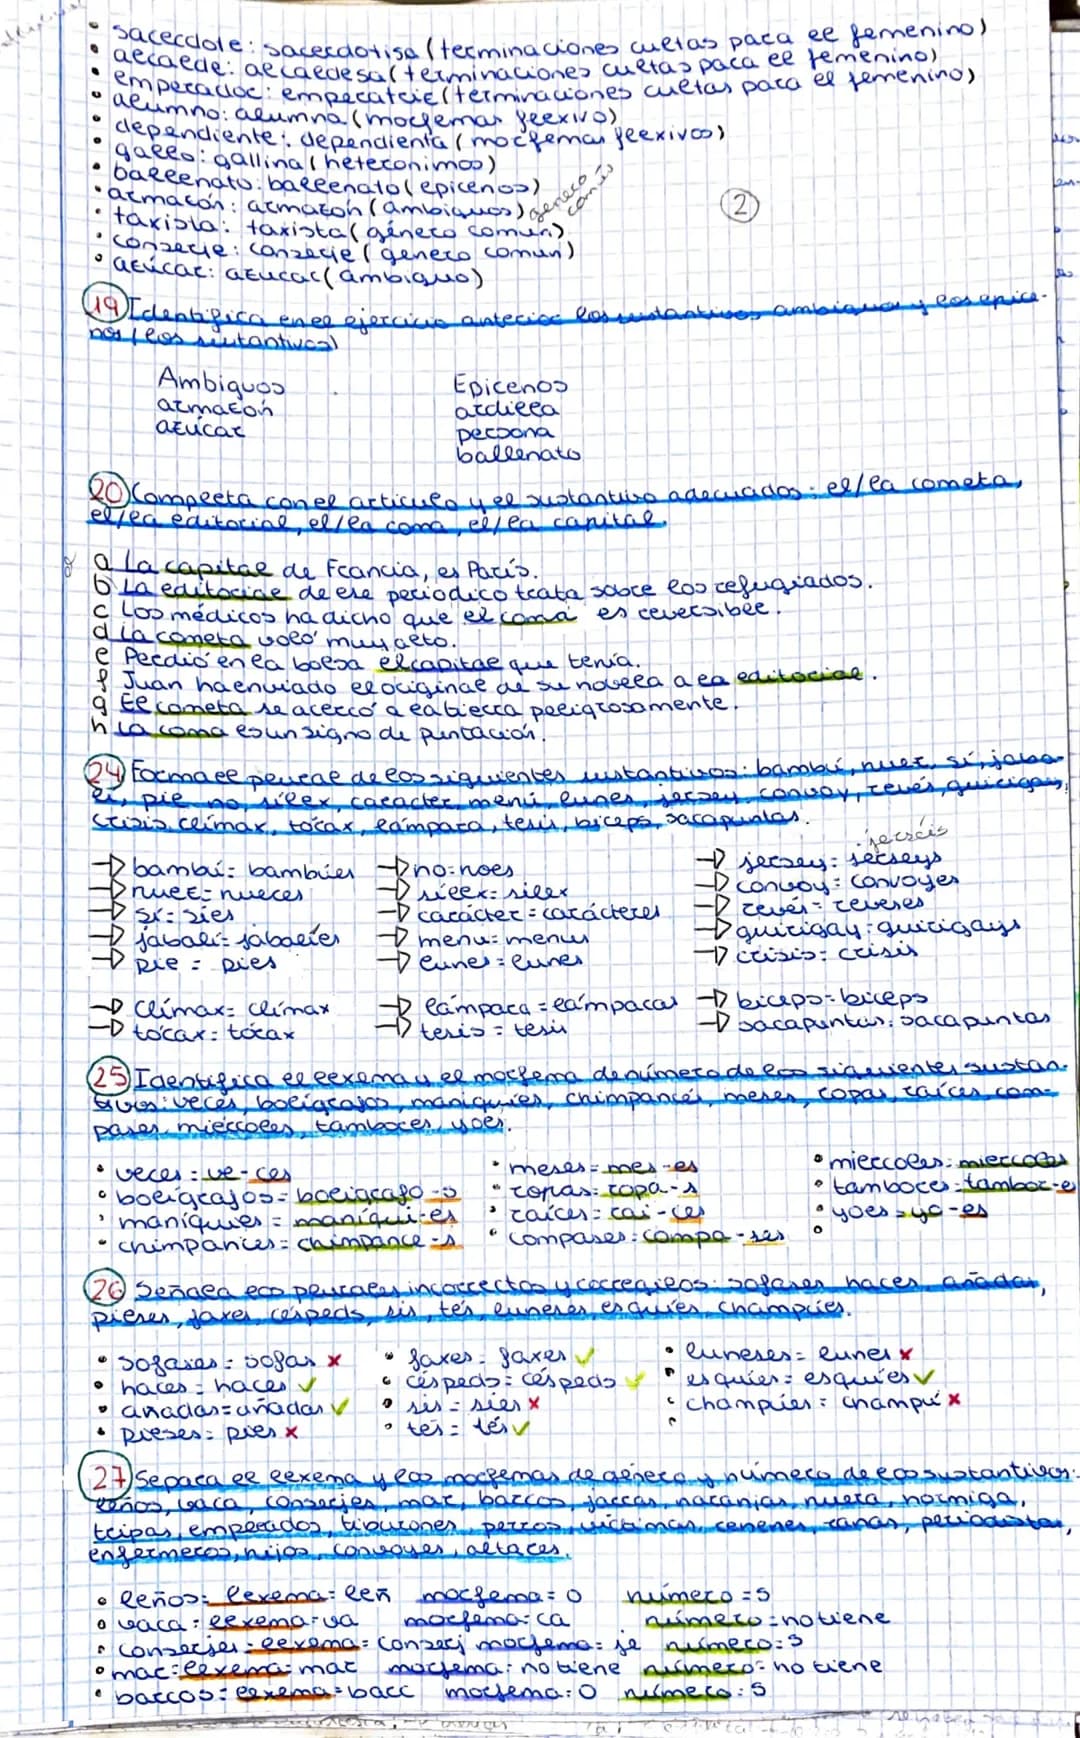 • sacerdote: sacerdotisa (terminaciones cultas para el femenino)
• alcalde: alcaldesa (terminaciones cultas para el femenino)
• emperador: emperatriz (terminaciones cultas para el femenino)
• alumno: alumna (morfemas flexivo)
• dependiente: dependienta (morfemas flexivos)
• gallo: gallina (heterónimos)
• ballenato: ballenato (epicenos)
• armazón: armazón (ambiguos) género común
• taxista: taxista (género común)
②
• conserje: conserje (género común)
• azúcar: azucar (ambiguo)
19 Identifica en el ejercicio anterior los sustantivos ambiguos y los epice-
nos (los sustantivos)
Ambiguos Epicenos
armazón ardilla
azúcar persona
ballenato
20 Completa con el articulo y el sustantivo adecuados: el/la cometa,
el/la editorial, el/la coma, el/la capital.
a La capital de Francia, es París.
b La editorial de ese periodico trata sobre los refugiados.
c Los médicos ha dicho que el coma es reversible.
d La cometa voló muy alto.
e Perdió en la bolsa el capital que tenía.
f Juan ha enviado el original de su novela a la editorial.
g El cometa se acercó a la tierra peligrosamente.
h La coma es un signo de puntación.
24 Forma el plural de los siguientes sustantivos: bambú, nuez, sí, jaba-
lí, pie, no, sílex, carácter, menú, lunes, jersey, convoy, revés, guirigay,
crisis, clímax, tórax, lámpara, tesis, bíceps, sacapuntas.
jerséis
→ bambú: bambúes → no: noes → jersey: jerseys
→ nuez = nueces → sílex = silex → convoy = convoyes
→ sí = síes → carácter = carácteres → revés = reveses
→ jabalí = jabalíes → menu = menus → guirigay: guirigays
→ pie = pies → lunes = lunes → crisis: crisis
→ clímax = clímax → lámpara = lámparas → biceps = biceps
→ tórax: tórax → tesis = tesis → sacapuntas: sacapuntas
25 Identifica el lexema y el morfema de número de los siguientes sustan-
tivos: veces, bolígrafos, maniquíes, chimpancés, meses, copas, raíces, com-
pases, miércoles, tambores, yoes.
• veces: ve-ces • meses = mes-es • miercoles: miercoles
• bolígrafos = bolígrafo-s • copas: copa-s • tambores = tambor-es
• maníquies = maníqui-es • raíces = raí-ces • yoes = yo-es
• chimpances = chimpance-s • compases: compa-ses •
26 Señala los plurales incorrectos y corregilos: sofases, haces, añadas,
pieses, faxes, céspeds, sis, tés, luneses, esquíes, champúes.
• sofases = sofas ✗ • faxes = faxes ✓ • luneses = lunes ✗
• haces = haces ✓ • céspeds = céspeds ✓ • esquíes = esquíes ✓
• añadas = añadas ✓ • sis = síes ✗ • champúes = champú ✗
• pieses = pies ✗ • tés = tés ✓ •
27 Separa el lexema y los morfemas de género y número de los sustantivos:
leños, vaca, conserjes, mar, barcos, jarras, naranjas, nuera, hormiga,
tripas, emperador, tiburones, perros, víctimas, cenenes, ranas, periodistas,
enfermeros, hijos, convoyes, altares.
• leños: lexema = leñ morfema = o número = s
• vaca: lexema = va morfema = ca número = no tiene
• conserjes = lexema = conserj morfema = je número: s
• mar: lexema = mar morfema = no tiene número = no tiene
• barcos: lexema = barc morfema: o número: s